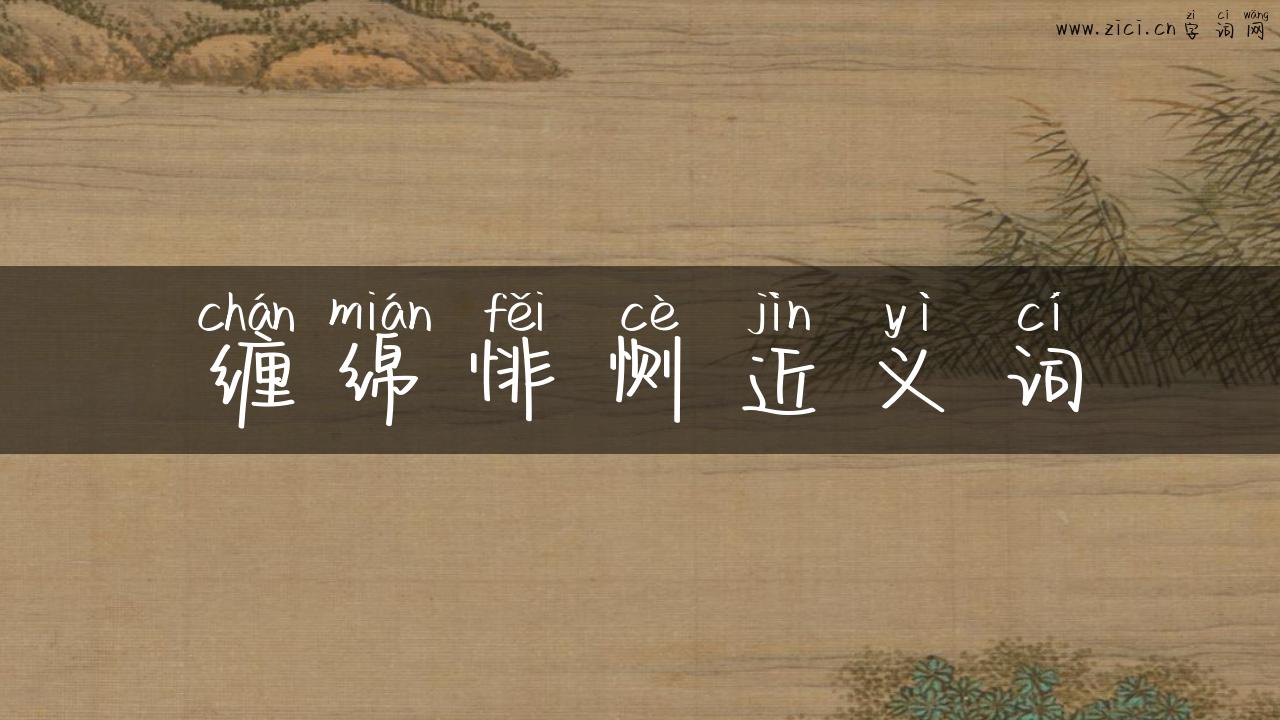 zì cí wǎng
www.zici.cn 字 词 网
chán mián fěi cè jìn yì cí
缠 绵 悱 恻 近 义 词